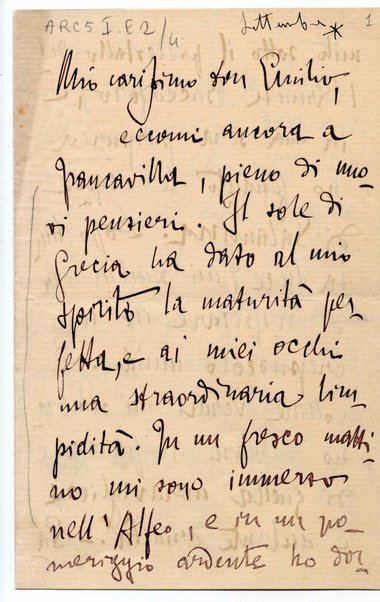 ARC5 I.E2/4
Settembre *
1
Mio carissimo don Emilio,
eccomi ancora a
Francavilla, pieno di nuo-
vi pensieri. Il sole di
Grecia ha dato al mio
spirito la maturità per-
fetta, e ai miei occhi
una straordinaria lim-
pidità. In un fresco matti-
no mi sono immerso
nell'Alfeo, e in un po-
meriggio ardente ho dor-